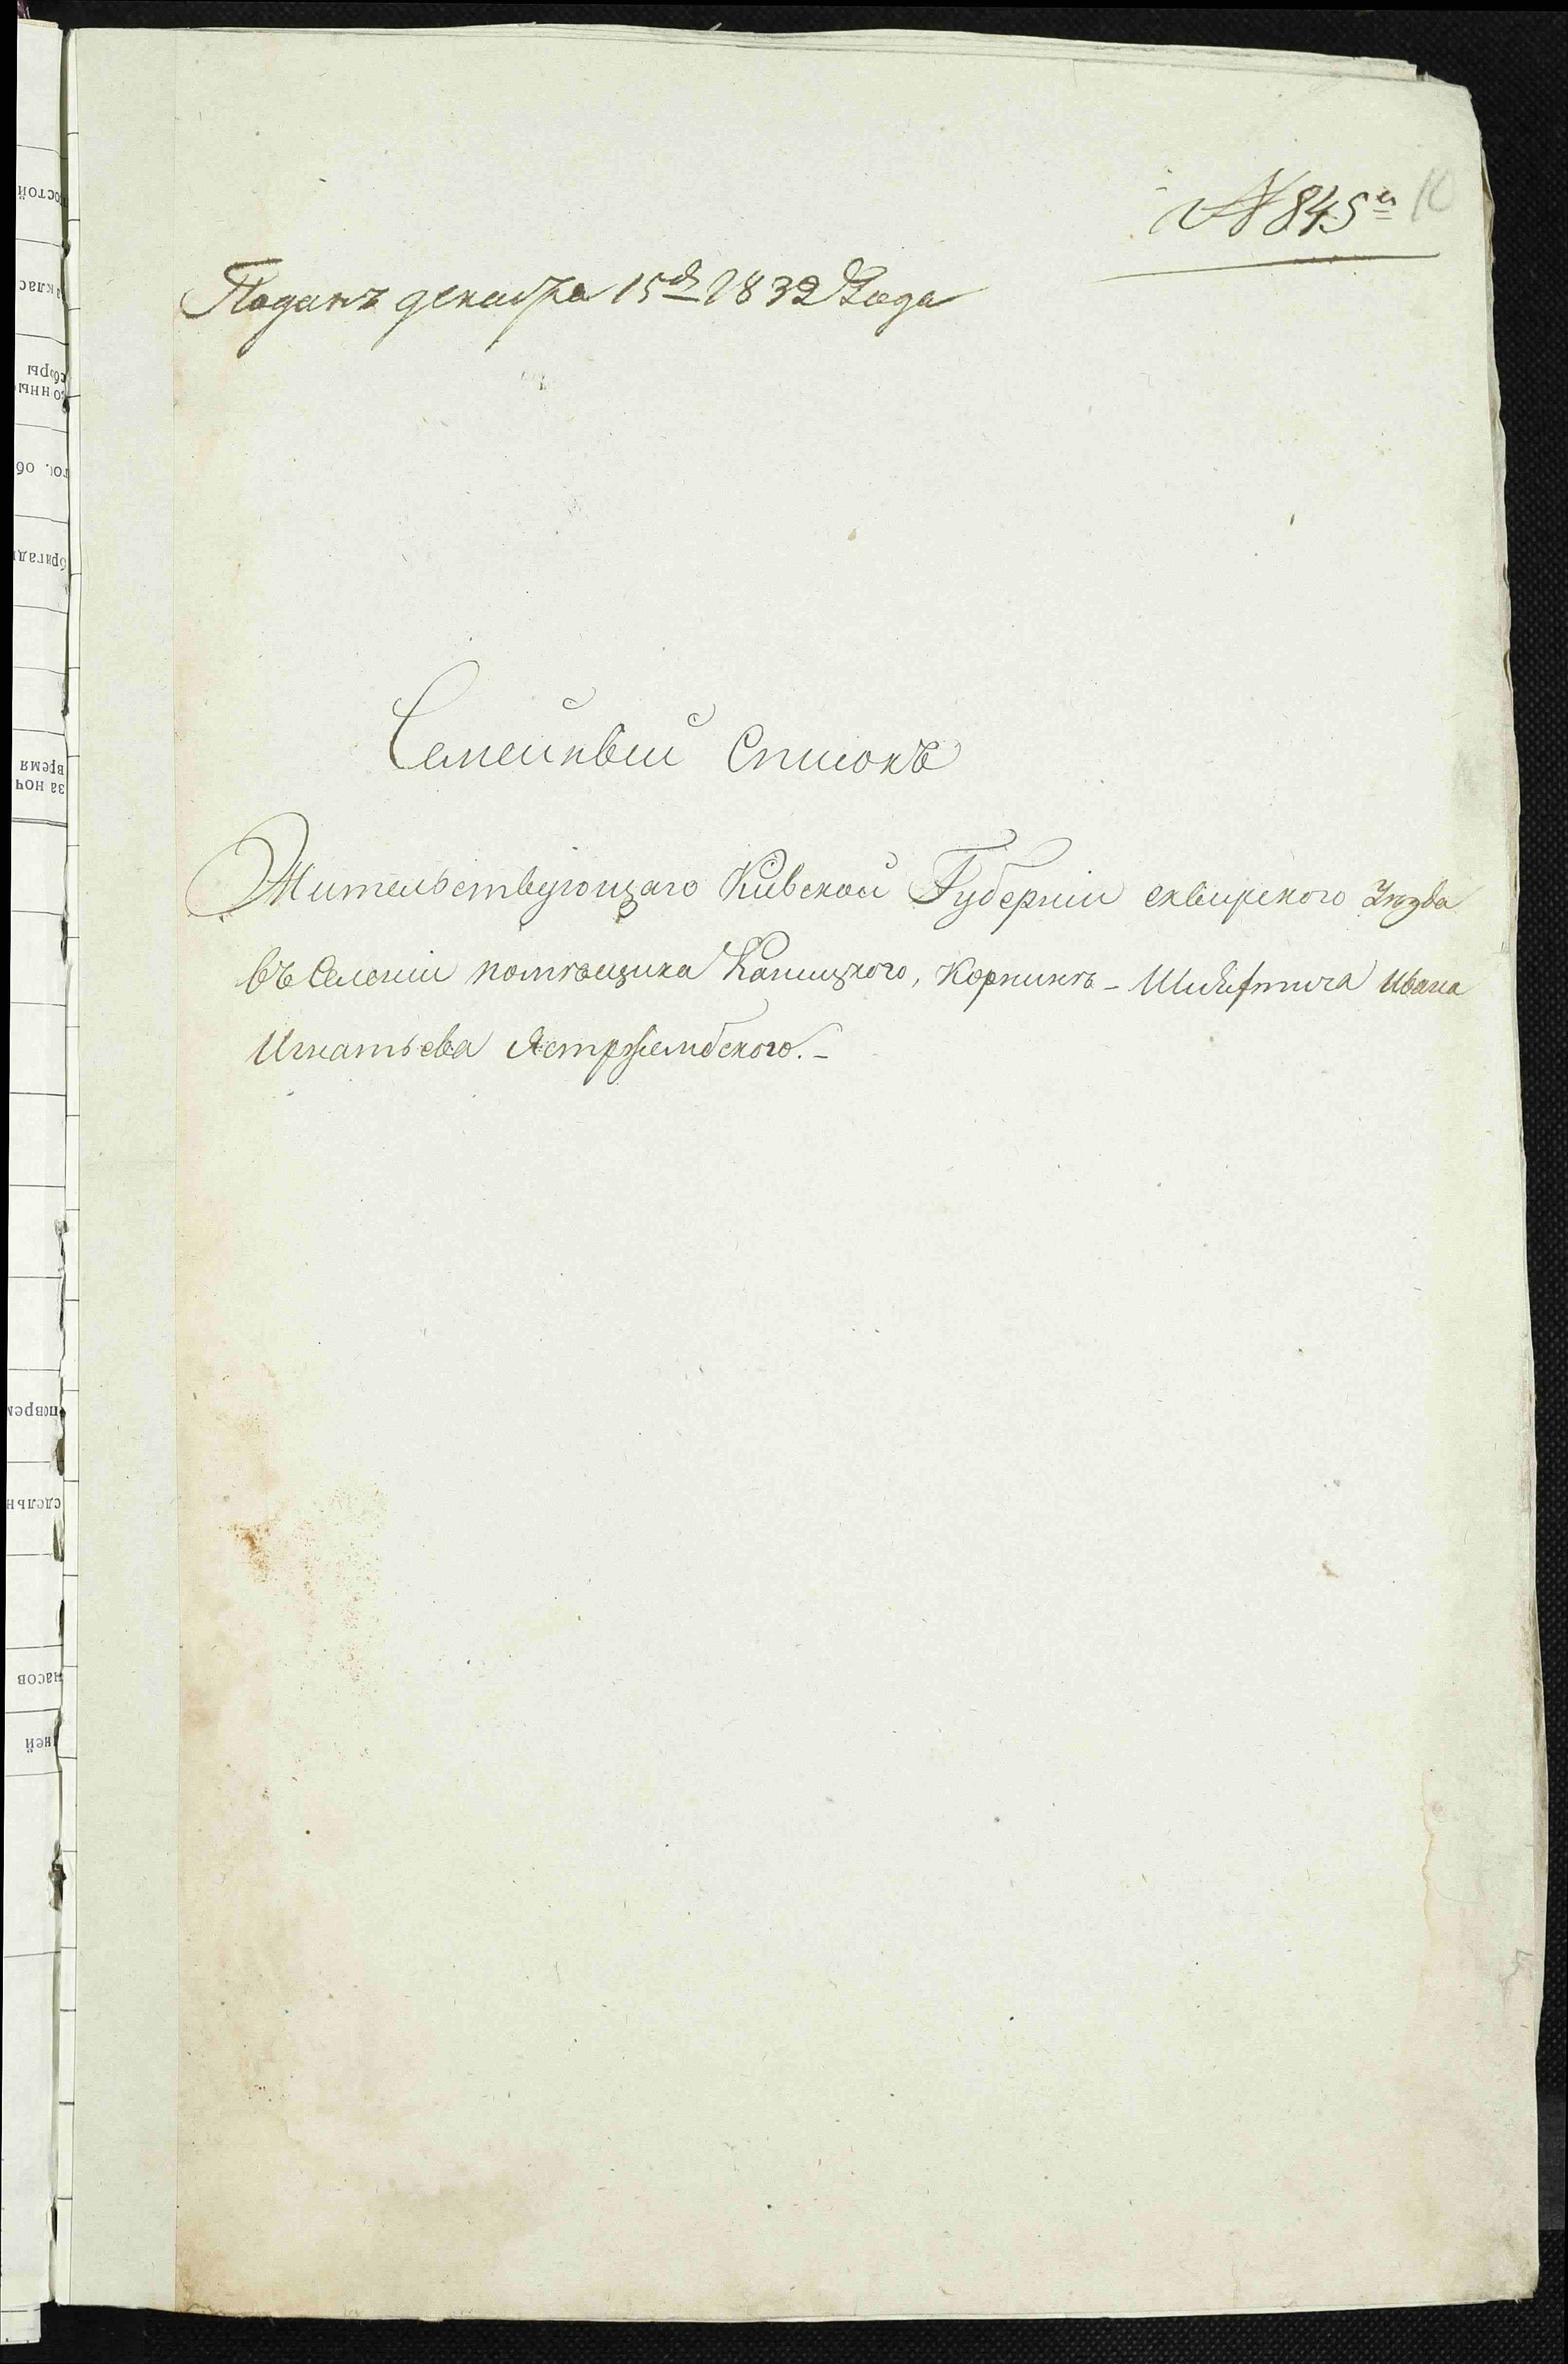 № 845й 10
Поданъ декабра 15го 1832 Года
Семейный Списокъ
Жительствующаго Киевской Губернии сквирского Уезда
въ Селении помъещика, Корнинъ - Шляхтича Ивана
Игнатьева Ястржембского. -
остой
клас
сборы
об
бригад
время
за ноч
поврем
сдельн
часов
дней